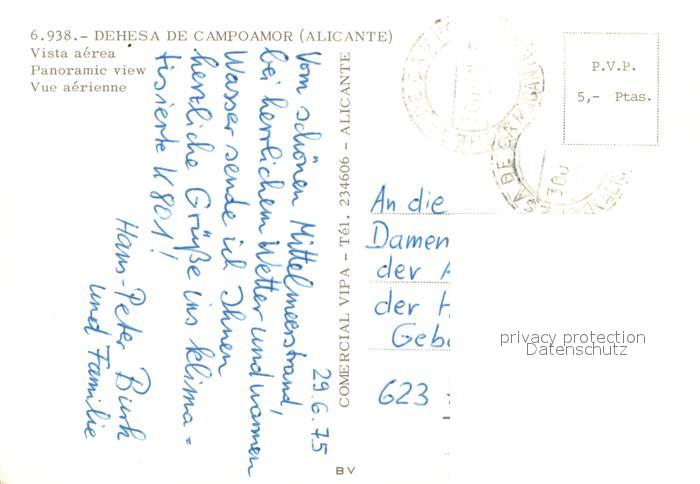 6.938.- DEHESA DE CAMPOAMOR (ALICANTE)
Vista aérea
Panoramic view
Vue aérienne
29.6.75
Vom schönen Mittelmeerstrand,
bei herrlichem Wetter und warmen
Wasser sende ich Ihnen
herzliche Grüße ins klima-
tisierte K801!
Hans-Peter Burk
und Familie
COMERCIAL VIPA - Tél. 234606 - ALICANTE
BV
P.V.P.
5,- Ptas.
An die
Damen
der
der H
Geb
623
privacy protection
Datenschutz